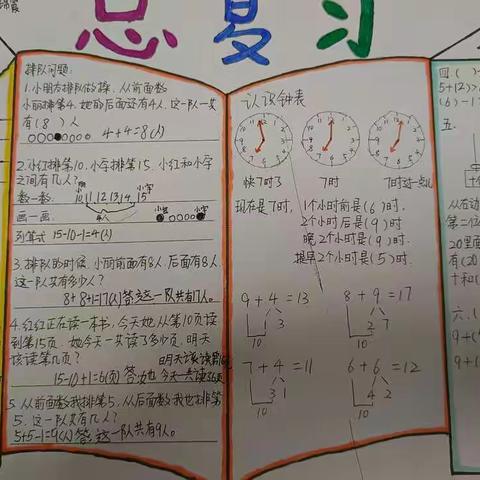 总复习
排队问题:
1.小朋友排队做操,从前面数
小丽排第4,她的后面还有4人,这一队一共
有(8)人
4+4=8(人)
2.小红排第10,小宇排第15,小红和小宇
之间有几人?
数一数、
10 11 12 13 14 15
小宇
4人
画一画、
列算式 15-10-1=4(人)
3.排队的时候,小丽前面有8人,后面有8人
这一队共有多少人?
8+8+1=17(人)答:这一队共有17人。
4.红红正在读一本书,今天她从第10页读
到第15页,她今天一共读了多少页,明天
该读第几页?
15-10+1=6(页)答:她今天一共读了6页
5.从前面数我排第5,从后面数我也排第
5,这一队共有几人?
5+5-1=9(人)答:这一队共有9人。
认识钟表
快7时了 7时 7时过一点儿
现在是7时,
1个小时前是(6)时.
2个小时后是(9)时
晚2个小时是(9)时.
提早2个小时是(5)时.
9+4=13
1 3
10
8+9=17
2 7
10
7+4=11
3 1
10
6+6=12
4 2
10
四
5+12>
(6)-1
五、
从右边
第二位
20里面
有(20
十和(
六、
9+(
9+(